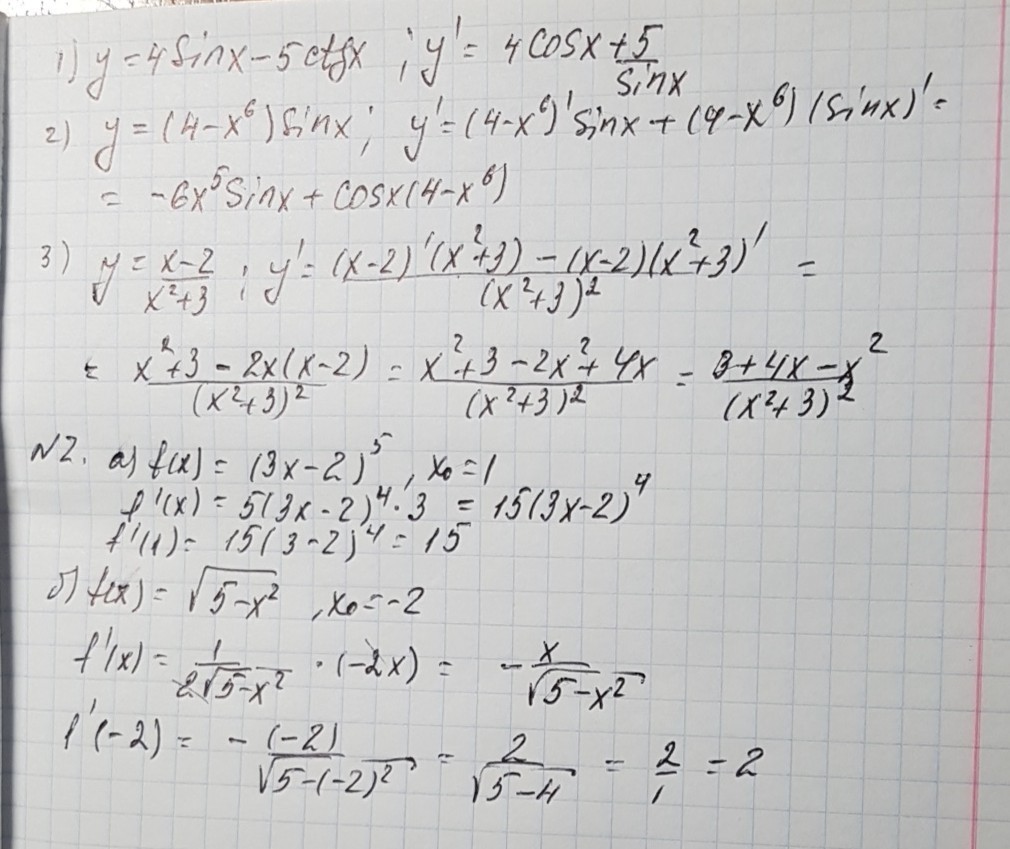 1) y = 4Sinx - 5ctgx ; y' = 4Cosx + 5/Sinx
2) y = (4 - x⁶)Sinx ; y' = (4 - x⁶)'Sinx + (4 - x⁶)(Sinx)' =
= -6x⁵Sinx + Cosx(4 - x⁶)
3) y = (x-2)/(x²+3) ; y' = ((x-2)'(x²+3) - (x-2)(x²+3)')/(x²+3)² =
= (x²+3 - 2x(x-2))/(x²+3)² = (x²+3 - 2x² + 4x)/(x²+3)² = (3+4x-x²)/(x²+3)²
N2. а) f(x) = (3x-2)⁵, x₀ = 1
f'(x) = 5(3x-2)⁴·3 = 15(3x-2)⁴
f'(1) = 15(3-2)⁴ = 15
б) f(x) = √(5-x²), x₀ = -2
f'(x) = 1/(2√(5-x²)) · (-2x) = -x/√(5-x²)
f'(-2) = -(-2)/√(5-(-2)²) = 2/√(5-4) = 2/1 = 2